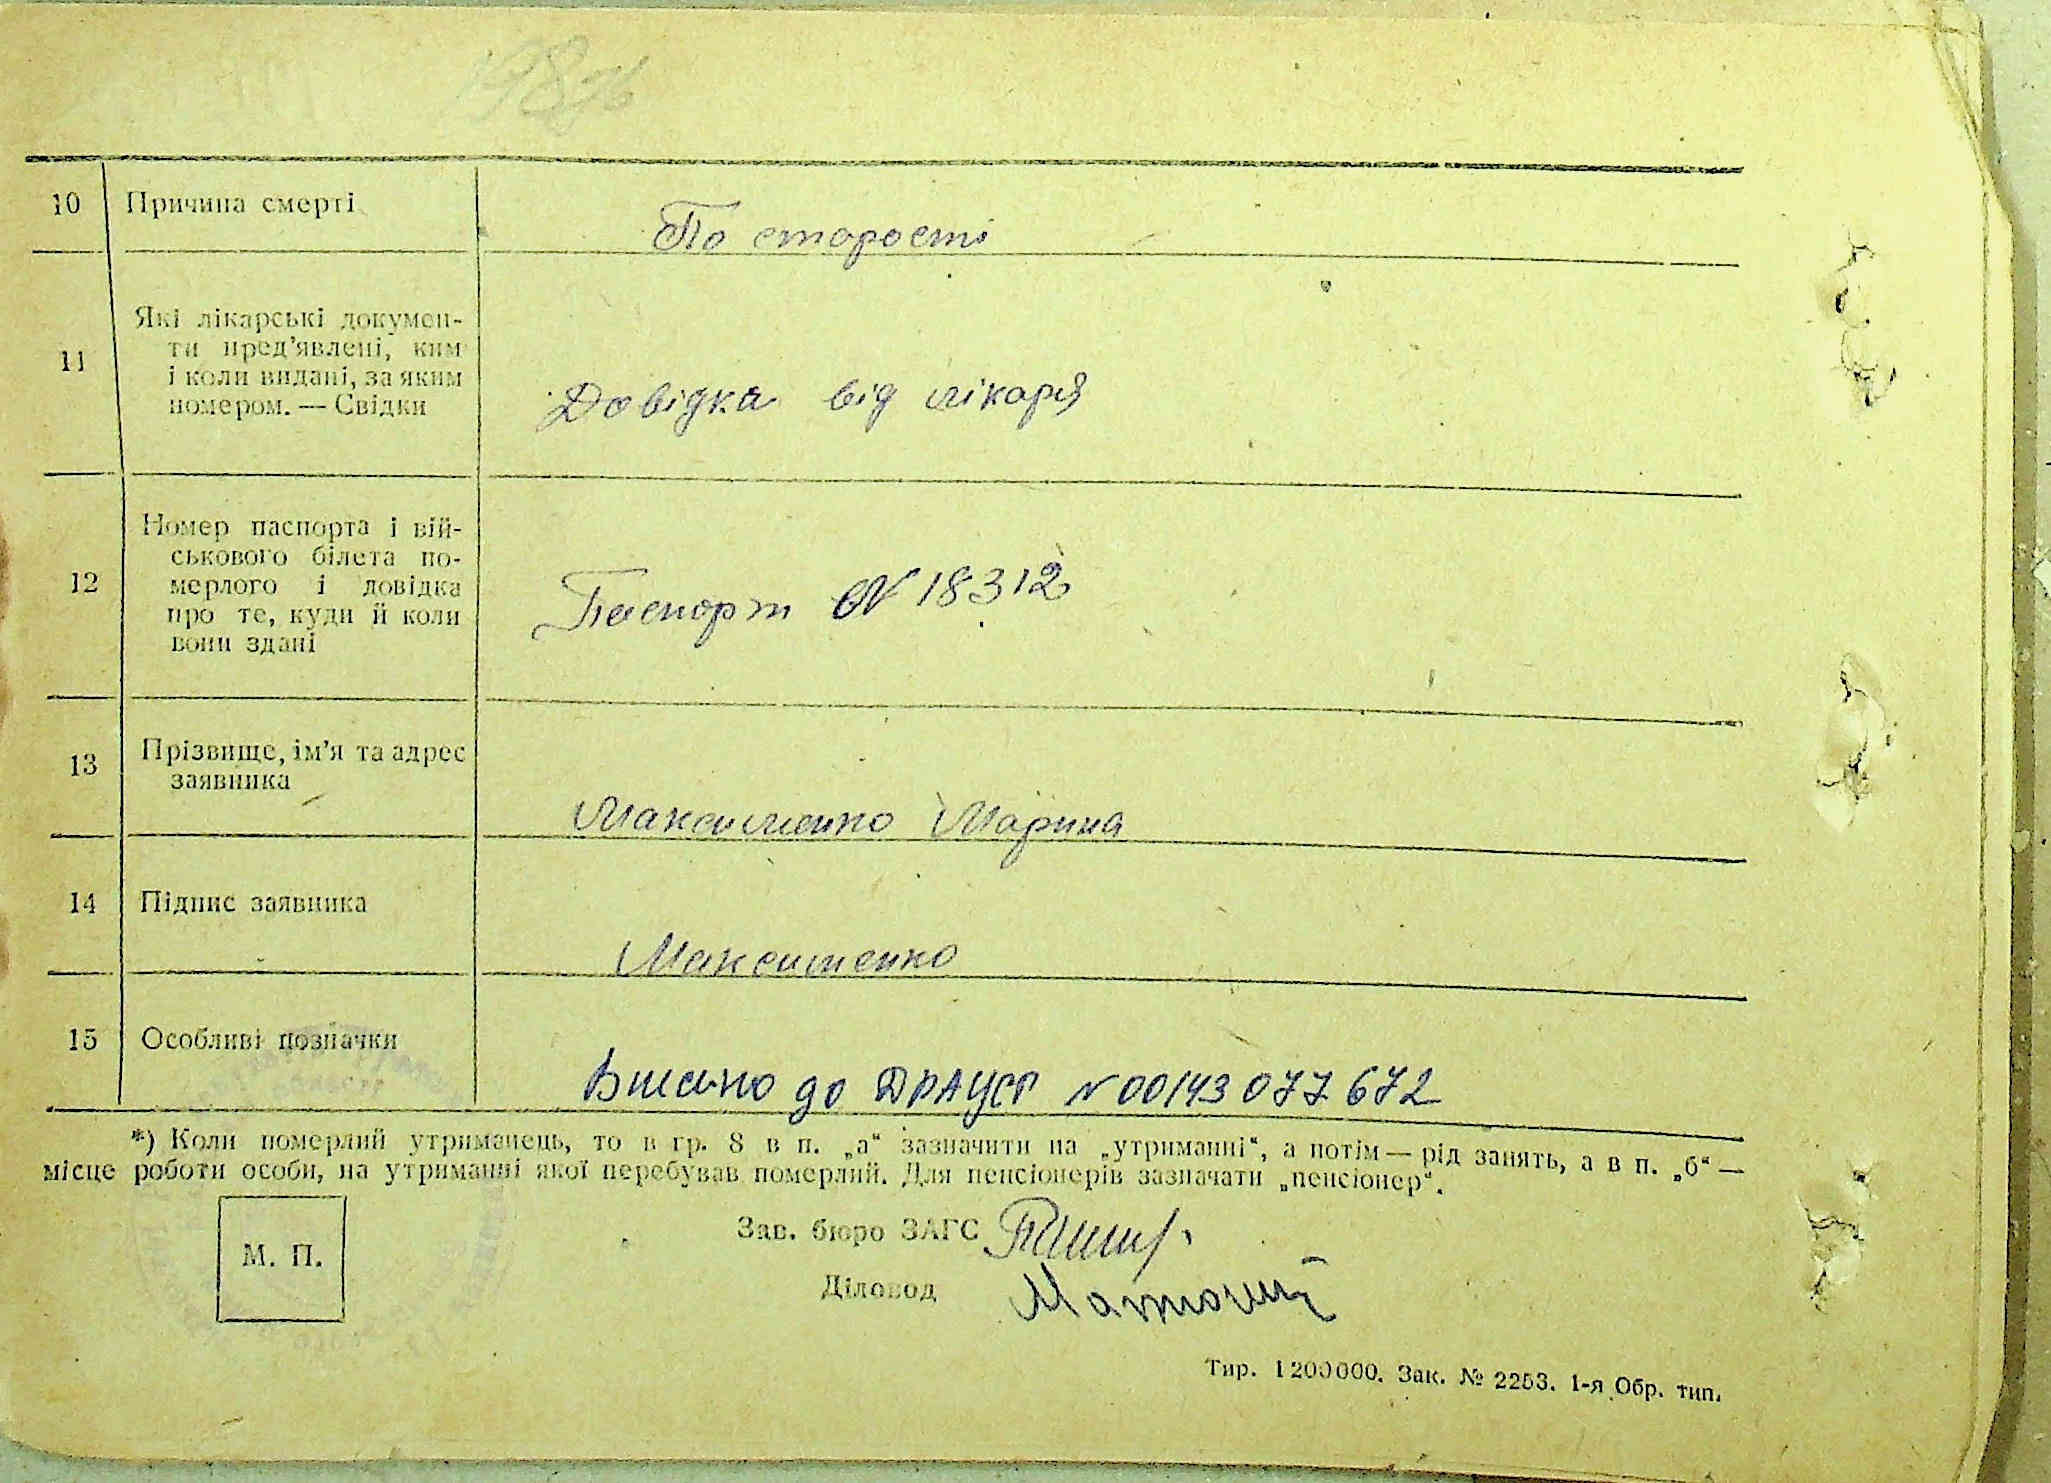 10 Причина смерті По старості
11 Які лікарські докумен-
ти пред'явлені, ким
і коли видані, за яким
номером. — Свідки Довідка від лікаря
12 Номер паспорта і вій-
ськового білета по-
мерлого і довідка
про те, куди й коли
вони здані Паспорт № 18312
13 Прізвище, ім'я та адрес
заявника Максименко Марина
14 Підпис заявника Максименко
15 Особливі позначки Внесено до ДРАЦСГ N 00143077672
*) Коли померлий утриманець, то в гр. 8 в п. „а“ зазначити на „утриманні“, а потім — рід занять, а в п. „б“ —
місце роботи особи, на утриманні якої перебував померлий. Для пенсіонерів зазначати „пенсіонер“.
Зав. бюро ЗАГС
М. П.
Діловод
Тир. 1200000. Зак. № 2253. 1-я Обр. тип.